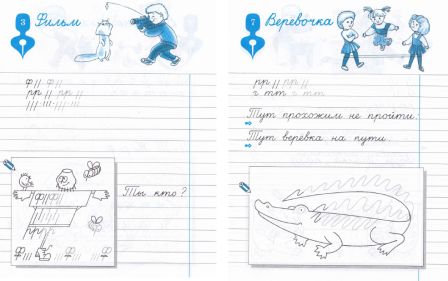 3 Фильм
ф // ф //
рр // рр //
/// /// /// ///
Ты кто?
7 Веревочка
рр // рр //
г тт г тт
Тут прохожим не пройти.
Тут веревка на пути.